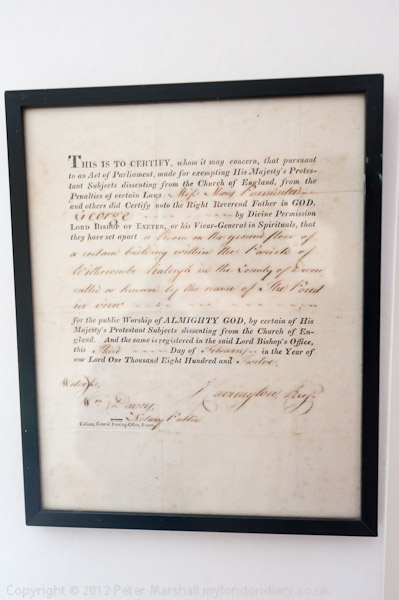 THIS IS TO CERTIFY, whom it may concern, that pursuant
to an Act of Parliament, made for exempting His Majesty's Protes-
tant Subjects dissenting from the Church of England, from the
Penalties of certain Laws; Miss Mary Parminter
and others did Certify unto the Right Reverend Father in GOD,
George by Divine Permission
LORD BISHOP OF EXETER, or his Vicar-General in Spirituals, that
they have set apart a Room in the ground floor of
a certain building within the Parish of
Withecombe Raleigh in the County of Devon
called or known by the name of The Point
in view
for the public Worship of ALMIGHTY GOD, by certain of His
Majesty's Protestant Subjects dissenting from the Church of
England. And the same is registered in the said Lord Bishop's Office,
this Third Day of February in the Year of
our Lord One Thousand Eight Hundred and Twelve.
Witness,
Wm
Notary Public
General Printing-Office, Exeter
Copyright © 2012 Peter Marshall mylondondiary.co.uk